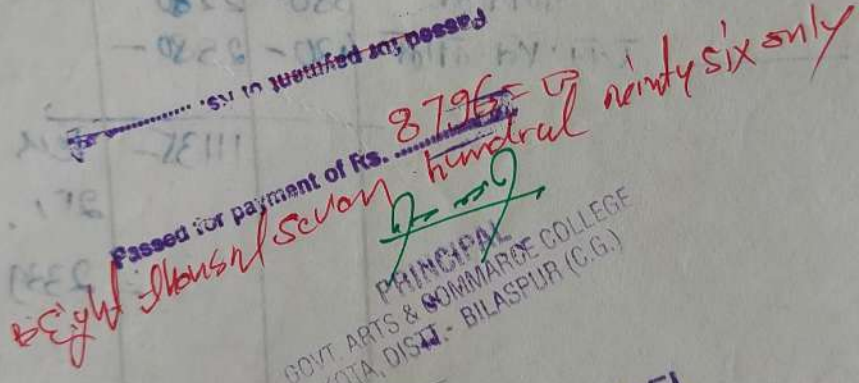 Passed for payment of Rs. ............
Passed for payment of Rs. 8796=00
Eight thousand seven hundral neinty six only
PRINCIPAL
GOVT. ARTS & COMMARCE COLLEGE
KOTA, DISTT.- BILASPUR (C.G.)